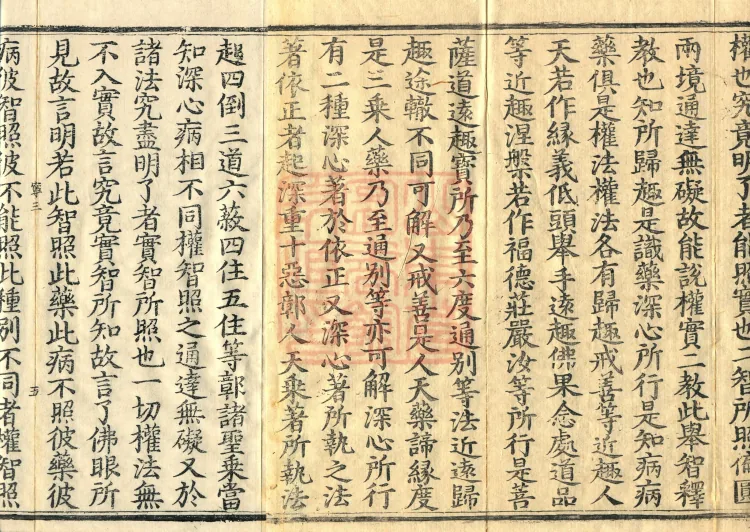 權也究竟明了者能照實也二智所照俱圓
兩境通達無礙故能說權實二教此舉智釋
教也知所歸趣是識藥深心所行是知病病
藥俱是權法權法各有歸趣戒善等近趣人
天若作緣義低頭舉手遠趣佛果念處道品
等近趣涅槃若作福德莊嚴汝等所行是菩
薩道遠趣寶所乃至六度通別等法近遠歸
趣途轍不同可解又戒善是人天藥諦緣度
是三乘人藥乃至通別等亦可解深心所行
有二種深心著於依正又深心著所執之法
著依正者起深重十惡鄣人天乘著所執法
起四倒三道六蔽四住五住等鄣諸聖乘當
知深心病相不同權智照之通達無礙又於
諸法究盡明了者實智所照也一切權法無
不入實故言究竟實智所知故言了佛眼所
見故言明若此智照此藥此病不照彼藥彼
寧三
五
病彼智照彼不能照此種別不同者權智照